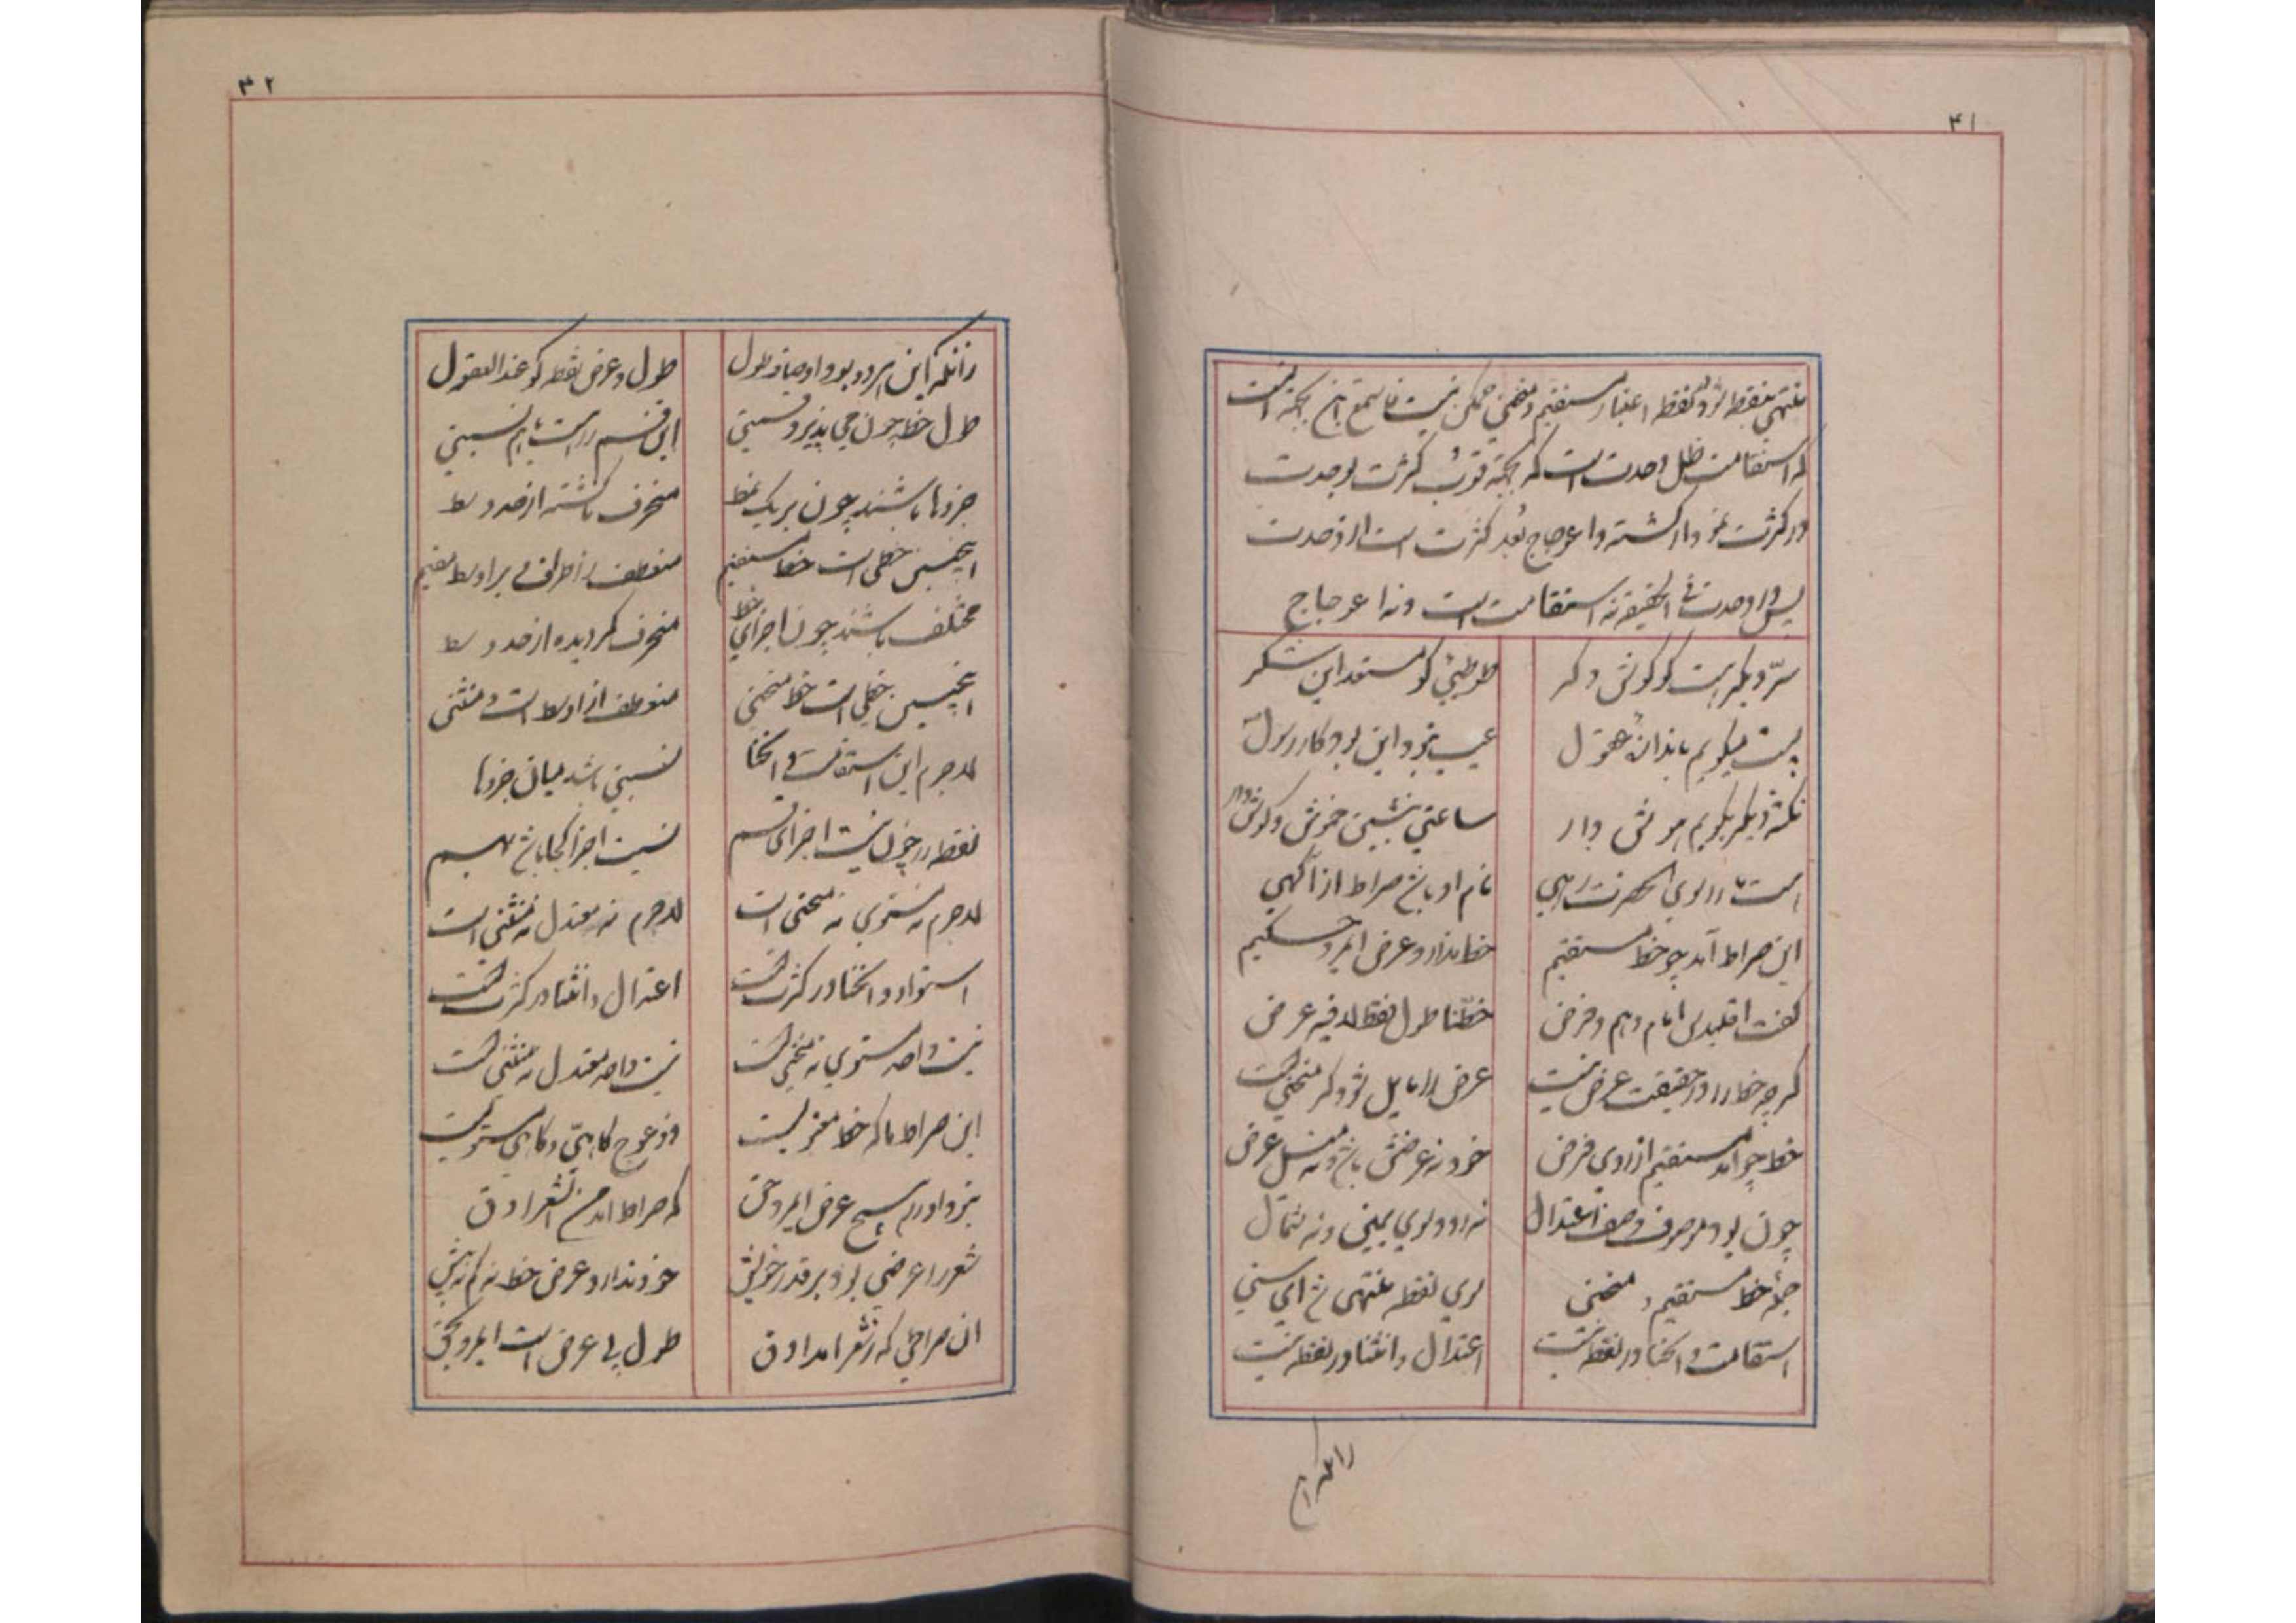 ۴۱
منتهی بنقطه شود و نقطه اعتبار مستقیم و منحنی ممکن نیست فاستمع این نکته است
که استقامت ظل وحدت است که نکته قرب کثرت بوحدت
در کثرت نمودار گشته و اعوجاج بعد کثرت است از وحدت
پس در وحدت فی الحقیقه نه استقامت است و نه اعوجاج
سرّ دیگر هست کو گوش دگر
طوطیی کو مستعد این شکر
پست میگویم باندازه عقول
عیب نبود این بود کار رسول
نکته دیگر بگویم هوش دار
ساعتی بنشین خوش و گوش دار
است ما را سوی آنحضرت رهی
نام او باشد صراط از آگهی
این صراط آمد چو خط مستقیم
خط ندارد عرض ای مرد حکیم
گفت اقلیدس امام وهم و فرض
خطنا طول فقط لا فیه عرض
گرچه خط را در حقیقت عرض نیست
عرض را مایل شود گر منحنیست
خط چو آمد مستقیم از روی فرض
خود نه عرضش باشد و نه میل عرض
چون بود موصوف وصف اعتدال
نه رود سوی یمین و نه شمال
جمله خط مستقیم و منحنی
سوی نقطه منتهی شد ای سنی
استقامت و انحنا در نقطه نیست
اعتدال و انثنا در نقطه نیست
زانکه این
۴۲
زانکه این هر دو بود اوصاف طول
طول و عرض نقطه کو عند العقول
طول خط چون می پذیرد قسمتی
این قسم راست باهم نسبتی
جزوها باشند چون بر یک نمط
منحرف ناگشته از حد وسط
اینچنین خطی است خط مستقیم
منعطف ز اطراف بر اوسط مقیم
مختلف باشند چون اجزای خط
منحرف گردیده از حد وسط
اینچنین خطی است خط منحنی
منعطف از اوسط است و منثنی
لاجرم این استقامت و انحنا
نسبتی باشد میان جزوها
نقطه را چون نیست اجزای قسم
نسبت اجزا کجا باشد بهم
لاجرم نه مستوی نه منحنی است
لاجرم نه معتدل نه منثنی است
استواء و انحنا در کثرتست
اعتدال و انثنا در کثرتست
نیست واحد مستوی نه منحنیست
نیست واحد معتدل نه منثنیست
این صراط ما که خط معنویست
ذو عوج گاهی و گاهی مستویست
نبود او را هیچ عرض ای مرد حق
که صراط آمد من الشعر ادق
شعر را عرضی بود بر قدر خویش
خود ندارد عرض خط نه کم نه بیش
آن صراطی که ز شعر آمد ادق
طول بی عرض است ای مرد محق